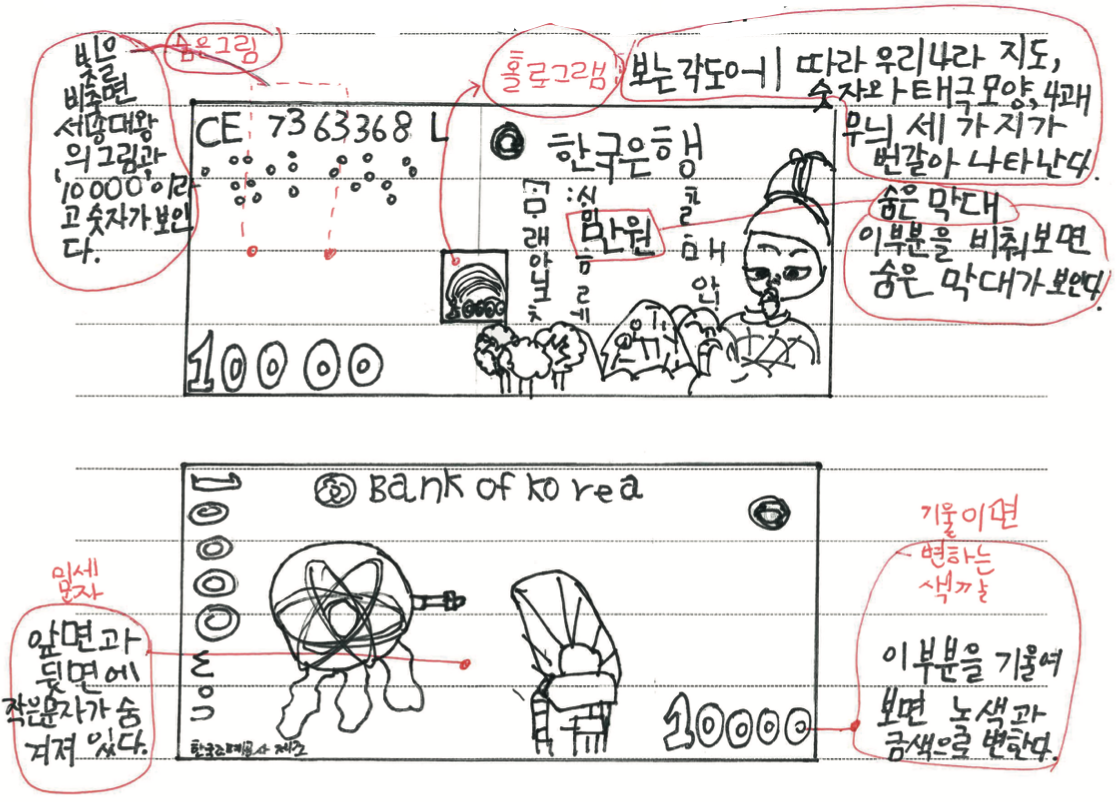 숨은그림
비추면
세종대왕
의 그림과,
'10000'이라
고 숫자가 보인
다.
홀로그램
보는각도에 따라 우리나라 지도,
숫자와 태극모양, 4괘
무늬 세 가지가
번갈아 나타난다.
CE 7363368 L
한국은행
만원
숨은 막대
이부분을 비춰보면
숨은 막대가 보인다.
10000
10000
10000
Bank of korea
한국조폐공사 제조
10000
미세
문자
앞면과
뒷면에
작은문자가 숨
겨져 있다.
기울이면
변하는
색깔
이 부분을 기울여
보면 녹색과
금색으로 변한다.